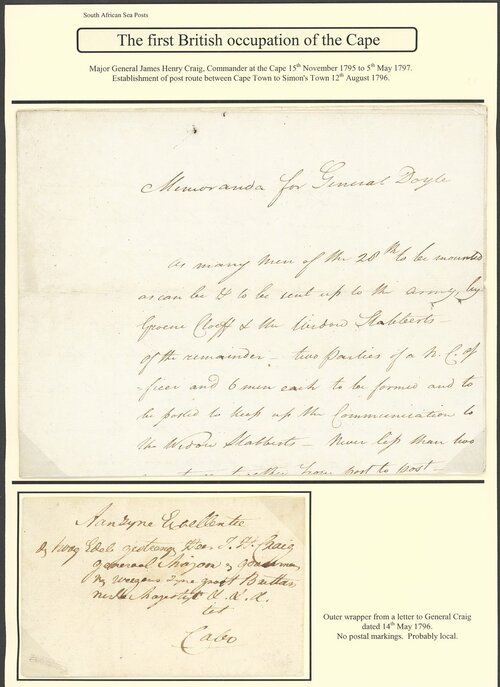 South African Sea Posts
The first British occupation of the Cape
Major General James Henry Craig, Commander at the Cape 15th November 1795 to 5th May 1797.
Establishment of post route between Cape Town to Simon's Town 12th August 1796.
Memoranda for General Doyle
As many men of the 28th to be mounted
as can be & to be sent up to the army, by
Groene Cloeff & the Widow Slabberts –
of the remainder – two Parties of a N. C. of
-ficer and 6 men each to be formed and to
be posted to keep up the Communication to
the Widow Slabberts – Never less than two
together from post to post –
Aan Zyne Excellentie
Edele gestrenge Heer J. H. Craig
generaal Majoor
wegens Zyne groot Brittan
Majesteit &. &. &.
tot
Cabo
Outer wrapper from a letter to General Craig
dated 14th May 1796.
No postal markings. Probably local.